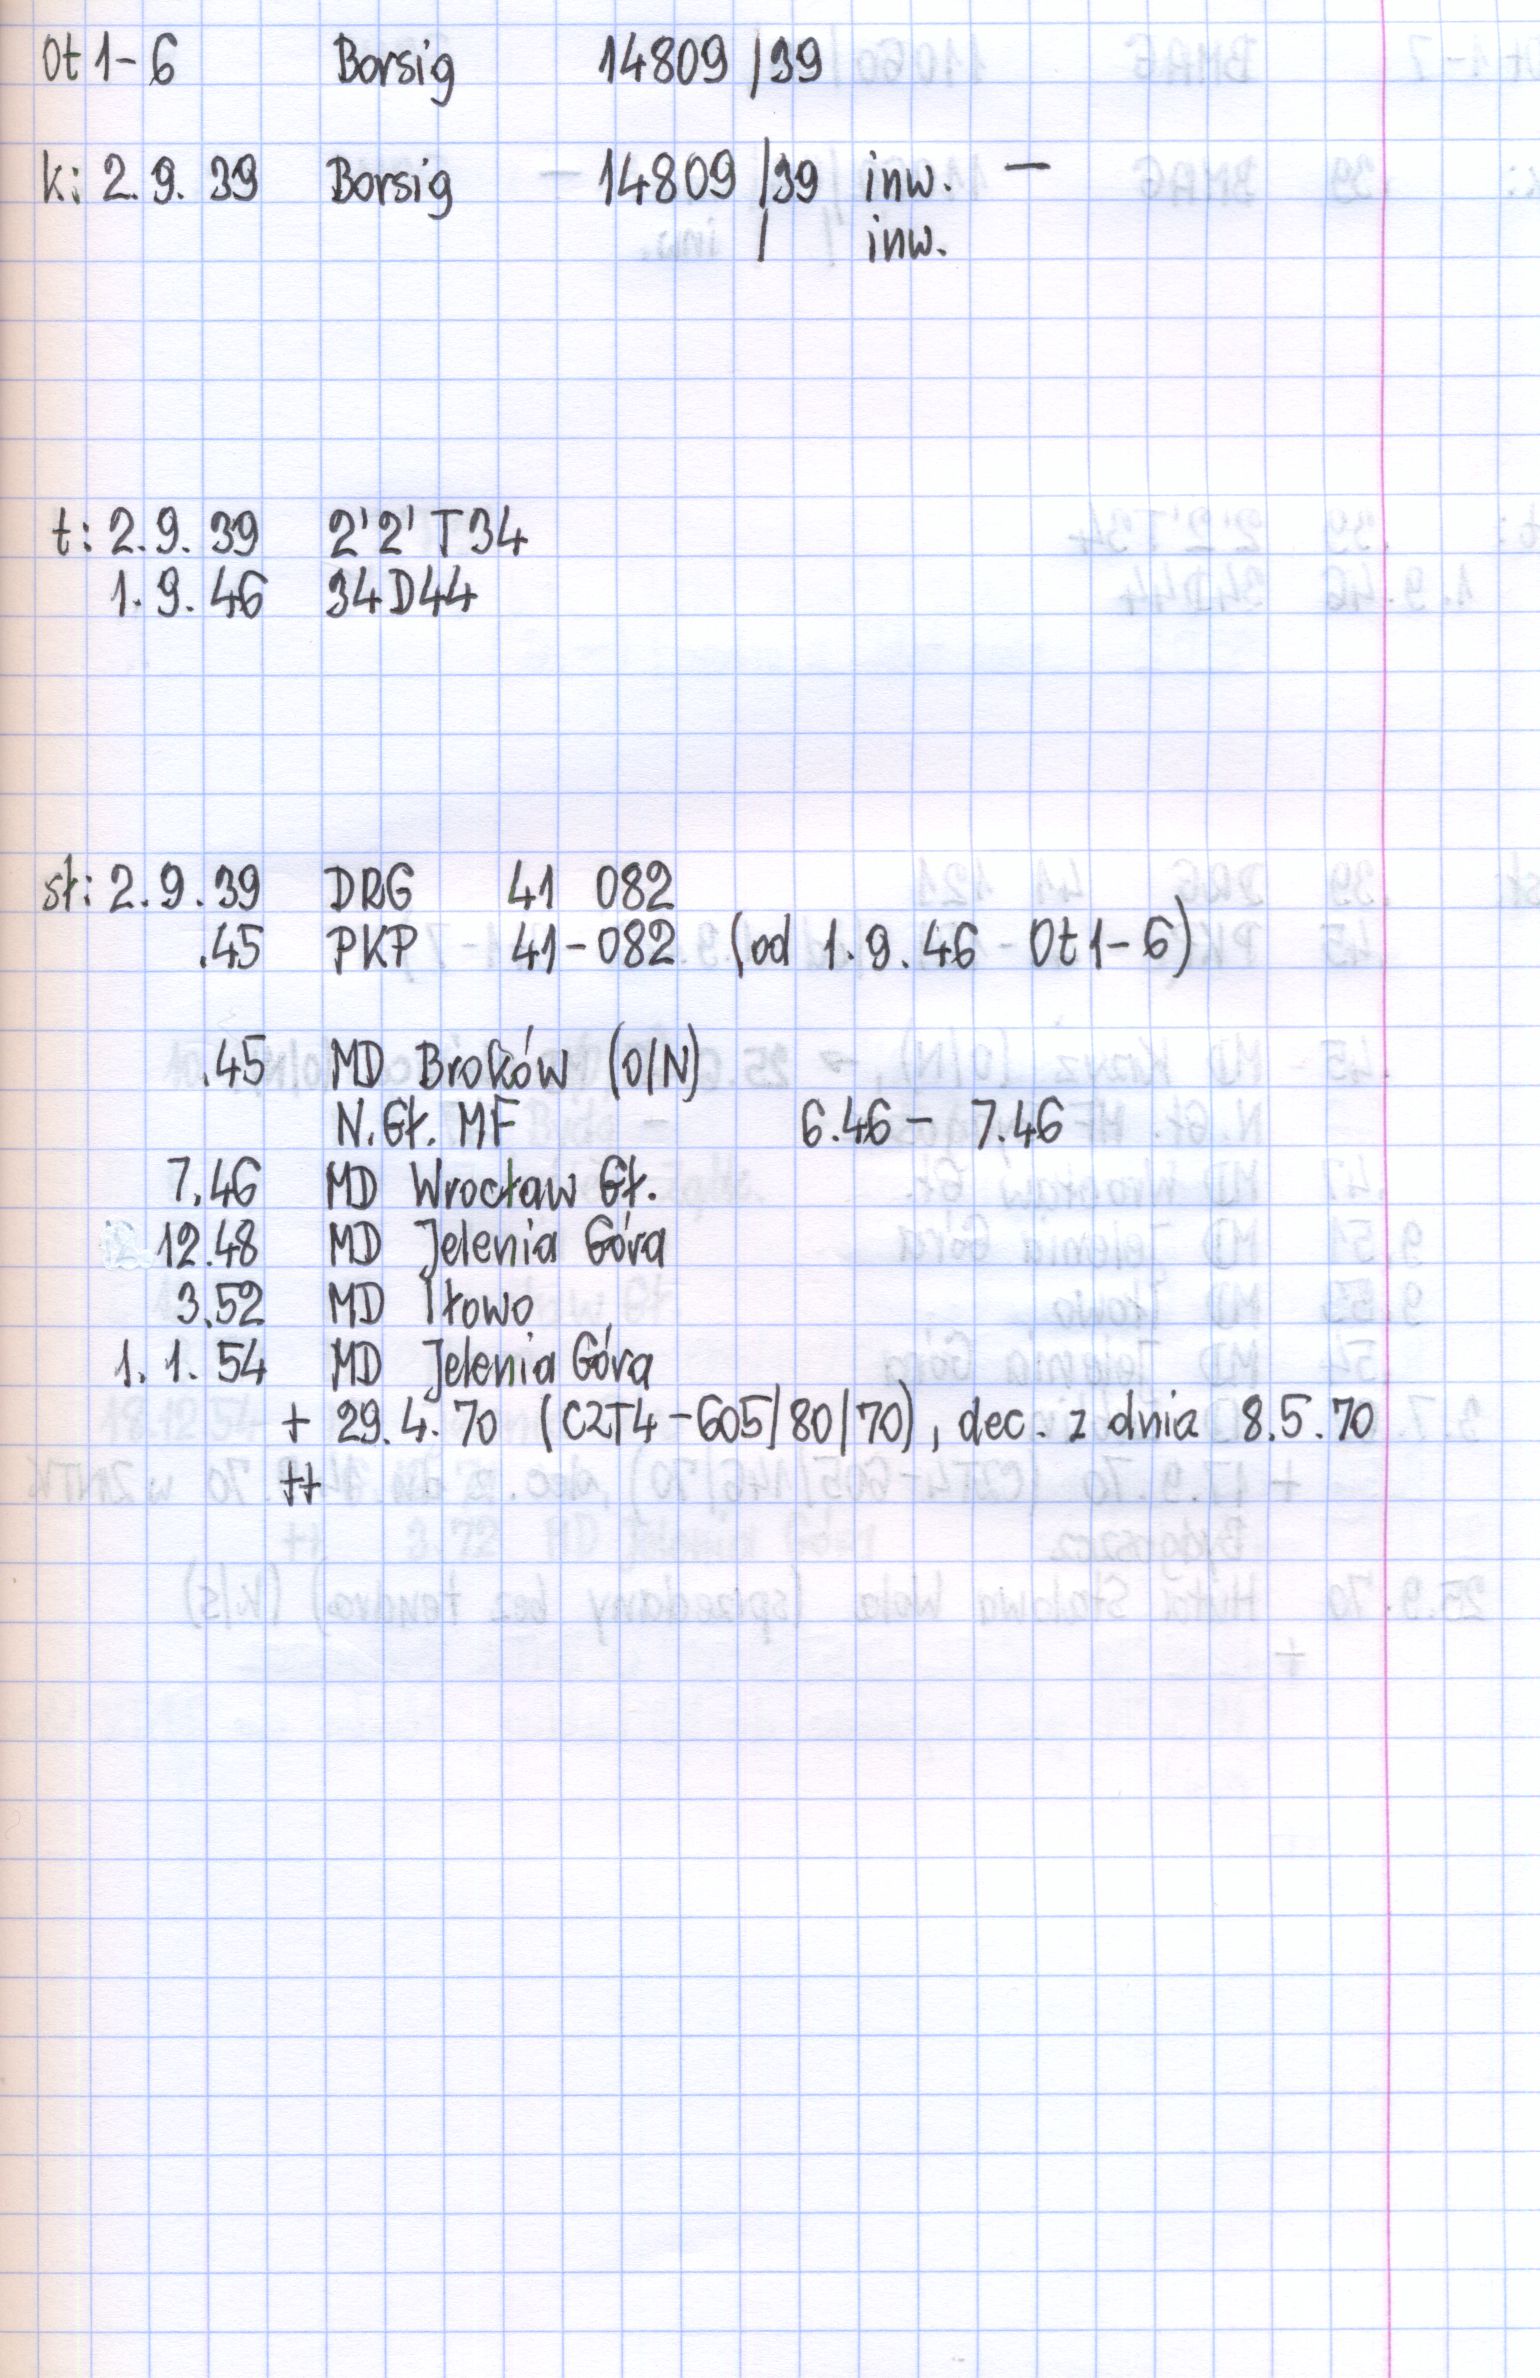 Ot1-6 Borsig 14809/39
k: 2.9.39 Borsig - 14809/39 inw. -
/ inw.
t: 2.9.39 2'2'T34
1.9.46 34D44
st: 2.9.39 DRG 41 082
.45 PKP 41-082 (od 1.9.46 - Ot1-6)
.45 MD Broków (O/N)
N.Gł. MF 6.46 - 7.46
7.46 MD Wrocław Gł.
12.48 MD Jelenia Góra
3.52 MD Iłowo
1.1.54 MD Jelenia Góra
+ 29.4.70 (C2T4-605/80/70), dec. z dnia 8.5.70
++